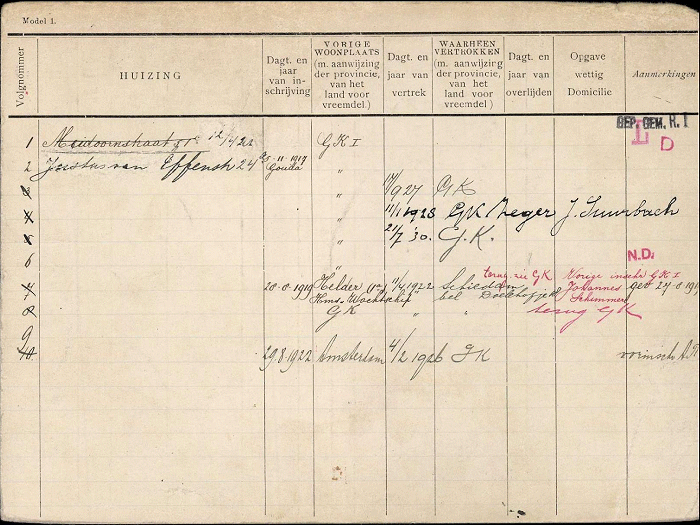 Model 1.
Volgnommer
HUIZING
Dagt. en jaar van in- schrijving
VORIGE WOONPLAATS (m. aanwijzing der provincie, van het land voor vreemdel.)
Dagt. en jaar van vertrek
WAARHEEN VERTROKKEN (m. aanwijzing der provincie, van het land voor vreemdel.)
Dagt. en jaar van overlijden
Opgave wettig Domicilie
Aanmerkingen
GEP. GEM. R. I
L D
1 Meidoornstraat 12/4 22 G K I
2 Justus van Effenstr 24 5-11-1917 Gouda "
" 927 GK
" 11/1 1928 GK Zeger J. Suurbach
" 21/7 '30. G.K.
6 N.D.
" terug zie GK Vorige inschr GK I
20-8-1919 Helder 1922 Schiedam Johannes geb 27-8-19
8 Hms. Wachtschip bel Schemmer
GK " " terug GK
9
10 29.8.1922 Amsterdam 4/2 1926 GK